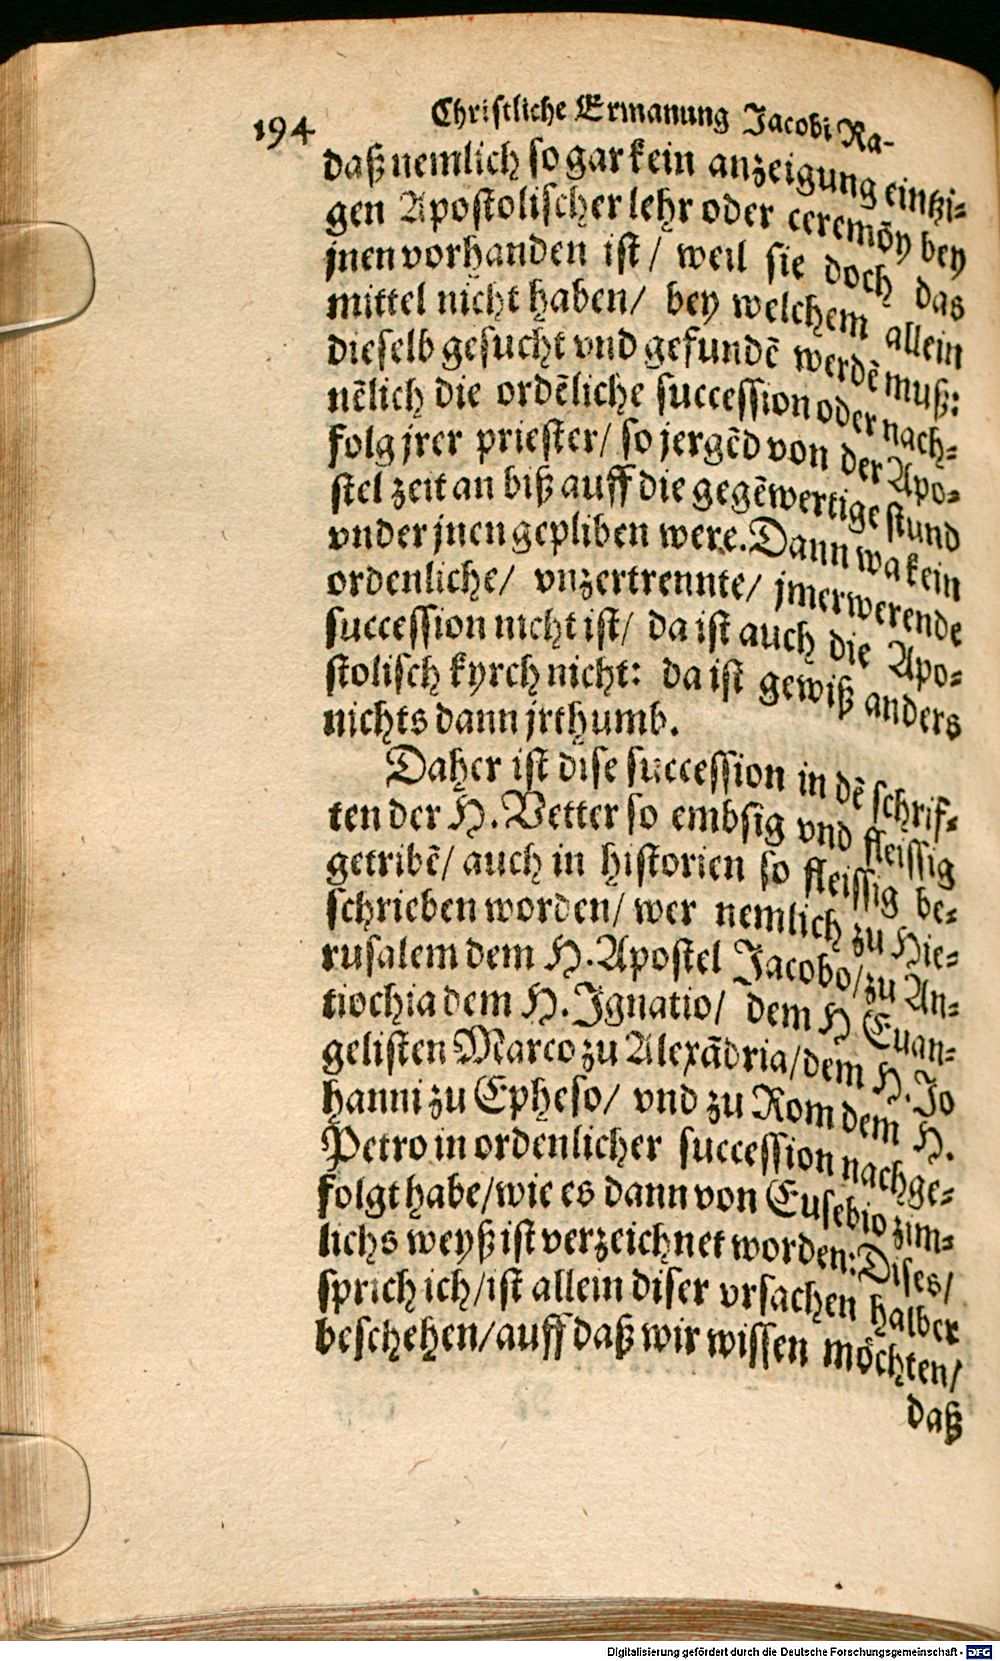 194 Christliche Ermanung Jacobi Ra-
daß nemlich so gar kein anzeigung eintzi-
gen Apostolischer lehr oder ceremõy bey
jnen vorhanden ist/ weil sie doch das
mittel nicht haben/ bey welchem allein
dieselb gesucht vnd gefundẽ werdẽ muß:
nẽlich die ordẽliche succession oder nach-
folg jrer priester/ so jergẽd von der Apo-
stel zeit an biß auff die gegẽwertige stund
vnder jnen gepliben were. Dann wa kein
ordenliche/ vnzertrennte/ jmerwerende
succession nicht ist/ da ist auch die Apo-
stolisch kyrch nicht: da ist gewiß anders
nichts dann jrthumb.
Daher ist dise succession in dẽ schrif-
ten der H. Vetter so embsig vnd fleissig
getribẽ/ auch in historien so fleissig be-
schrieben worden/ wer nemlich zu Hie-
rusalem dem H. Apostel Jacobo/ zu An-
tiochia dem H. Ignatio/ dem H Euan-
gelisten Marco zu Alexãdria/ dem H. Jo
hanni zu Epheso/ vnd zu Rom dem H.
Petro in ordenlicher succession nachge-
folgt habe/ wie es dann von Eusebio zim-
lichs weyß ist verzeichnet worden: Dises/
sprich ich/ ist allein diser vrsachen halber
beschehen/ auff daß wir wissen möchten/
daß
Digitalisierung gefördert durch die Deutsche Forschungsgemeinschaft - DFG